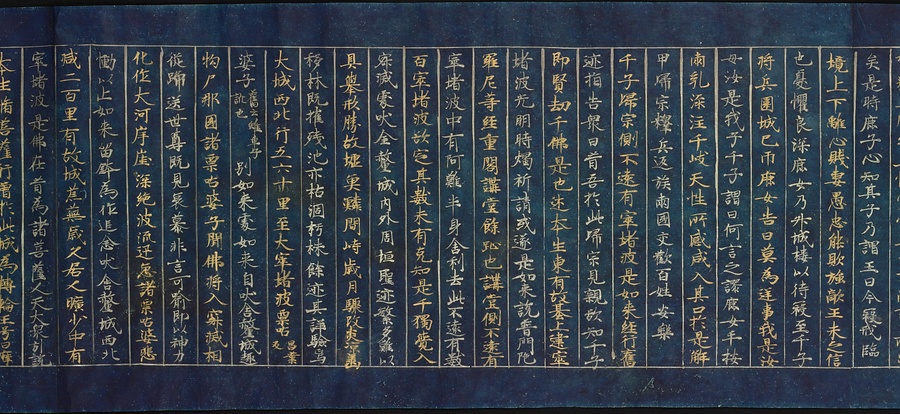 矣是時鹿子心知其子乃謂王曰今寇戎臨
境上下離心賤妻愚忠能敗強敵王未之信
也憂懼良深鹿女乃升城樓以待寇至千子
將兵圍城已匝鹿女告曰莫為逆事我是汝
母汝是我子千子謂曰何言之謬鹿女手按
兩乳深注千岐天性所感咸入其口於是解
甲歸宗釋兵返族兩國交歡百姓安樂
千子歸宗側不遠有窣堵波是如來經行舊
迹指告眾曰昔吾於此歸宗見親欲知千子
即賢劫千佛是也述本生東有故基上建窣
堵波光明時燭祈請或遂是如來說普門陀
羅尼等經重閣講堂餘址也講堂側不遠有
窣堵波中有阿難半身舍利去此不遠有數
百窣堵波欲定其數未有克知是千獨覺入
寂滅處吠舍釐城內外周隍聖迹繁多難以
具舉形勝故墟魚鱗間峙歲月驟改炎涼亟
移林既摧殘池亦枯涸朽株餘迹其詳驗焉
大城西北行五六十里至大窣堵波栗呫昌葉反
婆子舊云離車子訛也別如來處如來自吠舍釐城趣
拘尸那國諸栗呫婆子聞佛將入寂滅相
從號送世尊既見哀慕非言可喻即以神力
化作大河岸崖深絕波流迅急諸栗呫婆悲
慟以止如來留鉢為作追念吠舍釐城西北
減二百里有故城荒蕪歲久居人曠少中有
窣堵波是佛在昔為諸菩薩人天大眾引說
本生脩菩薩行曾於此城為轉輪王號曰摩